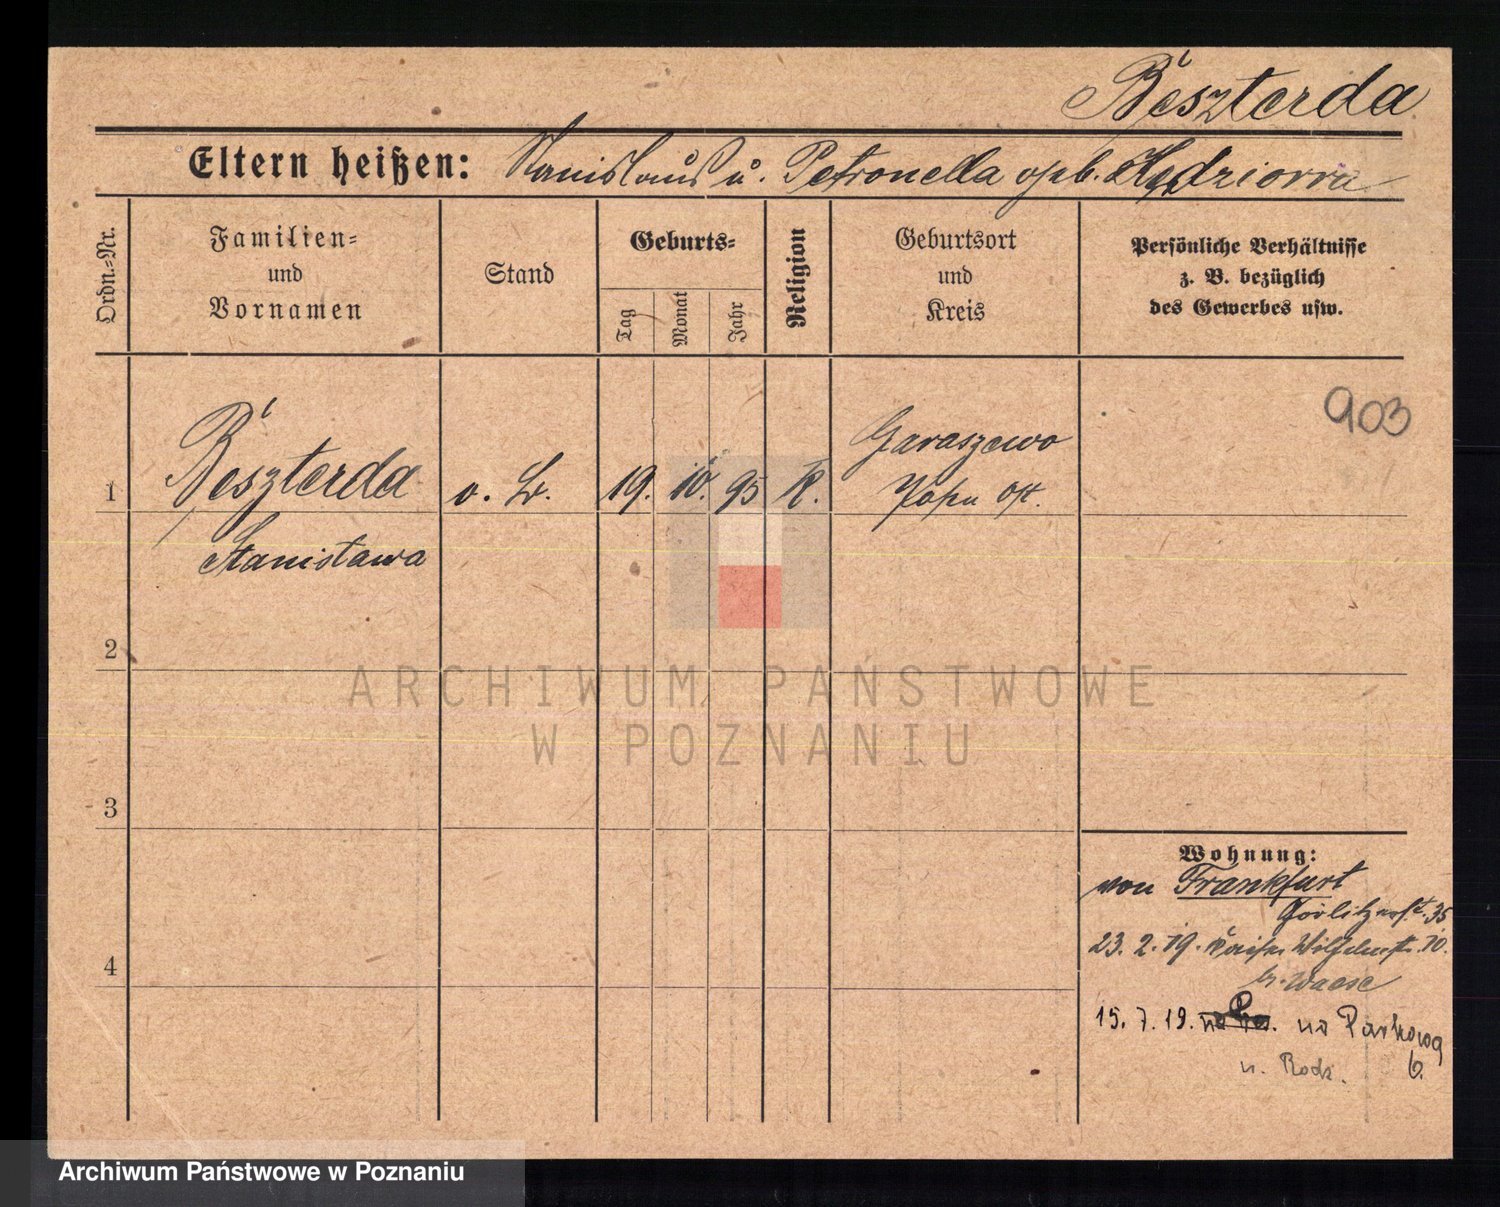 Beszterda
Eltern heißen: Stanislaus u. Petronella geb. Kędziorra
Ordn.=Nr.
Familien=
und
Vornamen
Stand
Geburts=
Tag
Monat
Jahr
Religion
Geburtsort
und
Kreis
Persönliche Verhältnisse
z. B. bezüglich
des Gewerbes usw.
903
1
Beszterda
Stanisława
o. B.
19. 10. 95
K.
Garaszewo
Posen Ost.
2
3
4
Wohnung:
von Frankfurt
Görlitzerst. 35
23. 2. 19. Kaiser Wilhelmstr. 10.
b. Waese
15. 7. 19. na Parkową
6.
u. Rodz.
ARCHIWUM PAŃSTWOWE
W POZNANIU
Archiwum Państwowe w Poznaniu